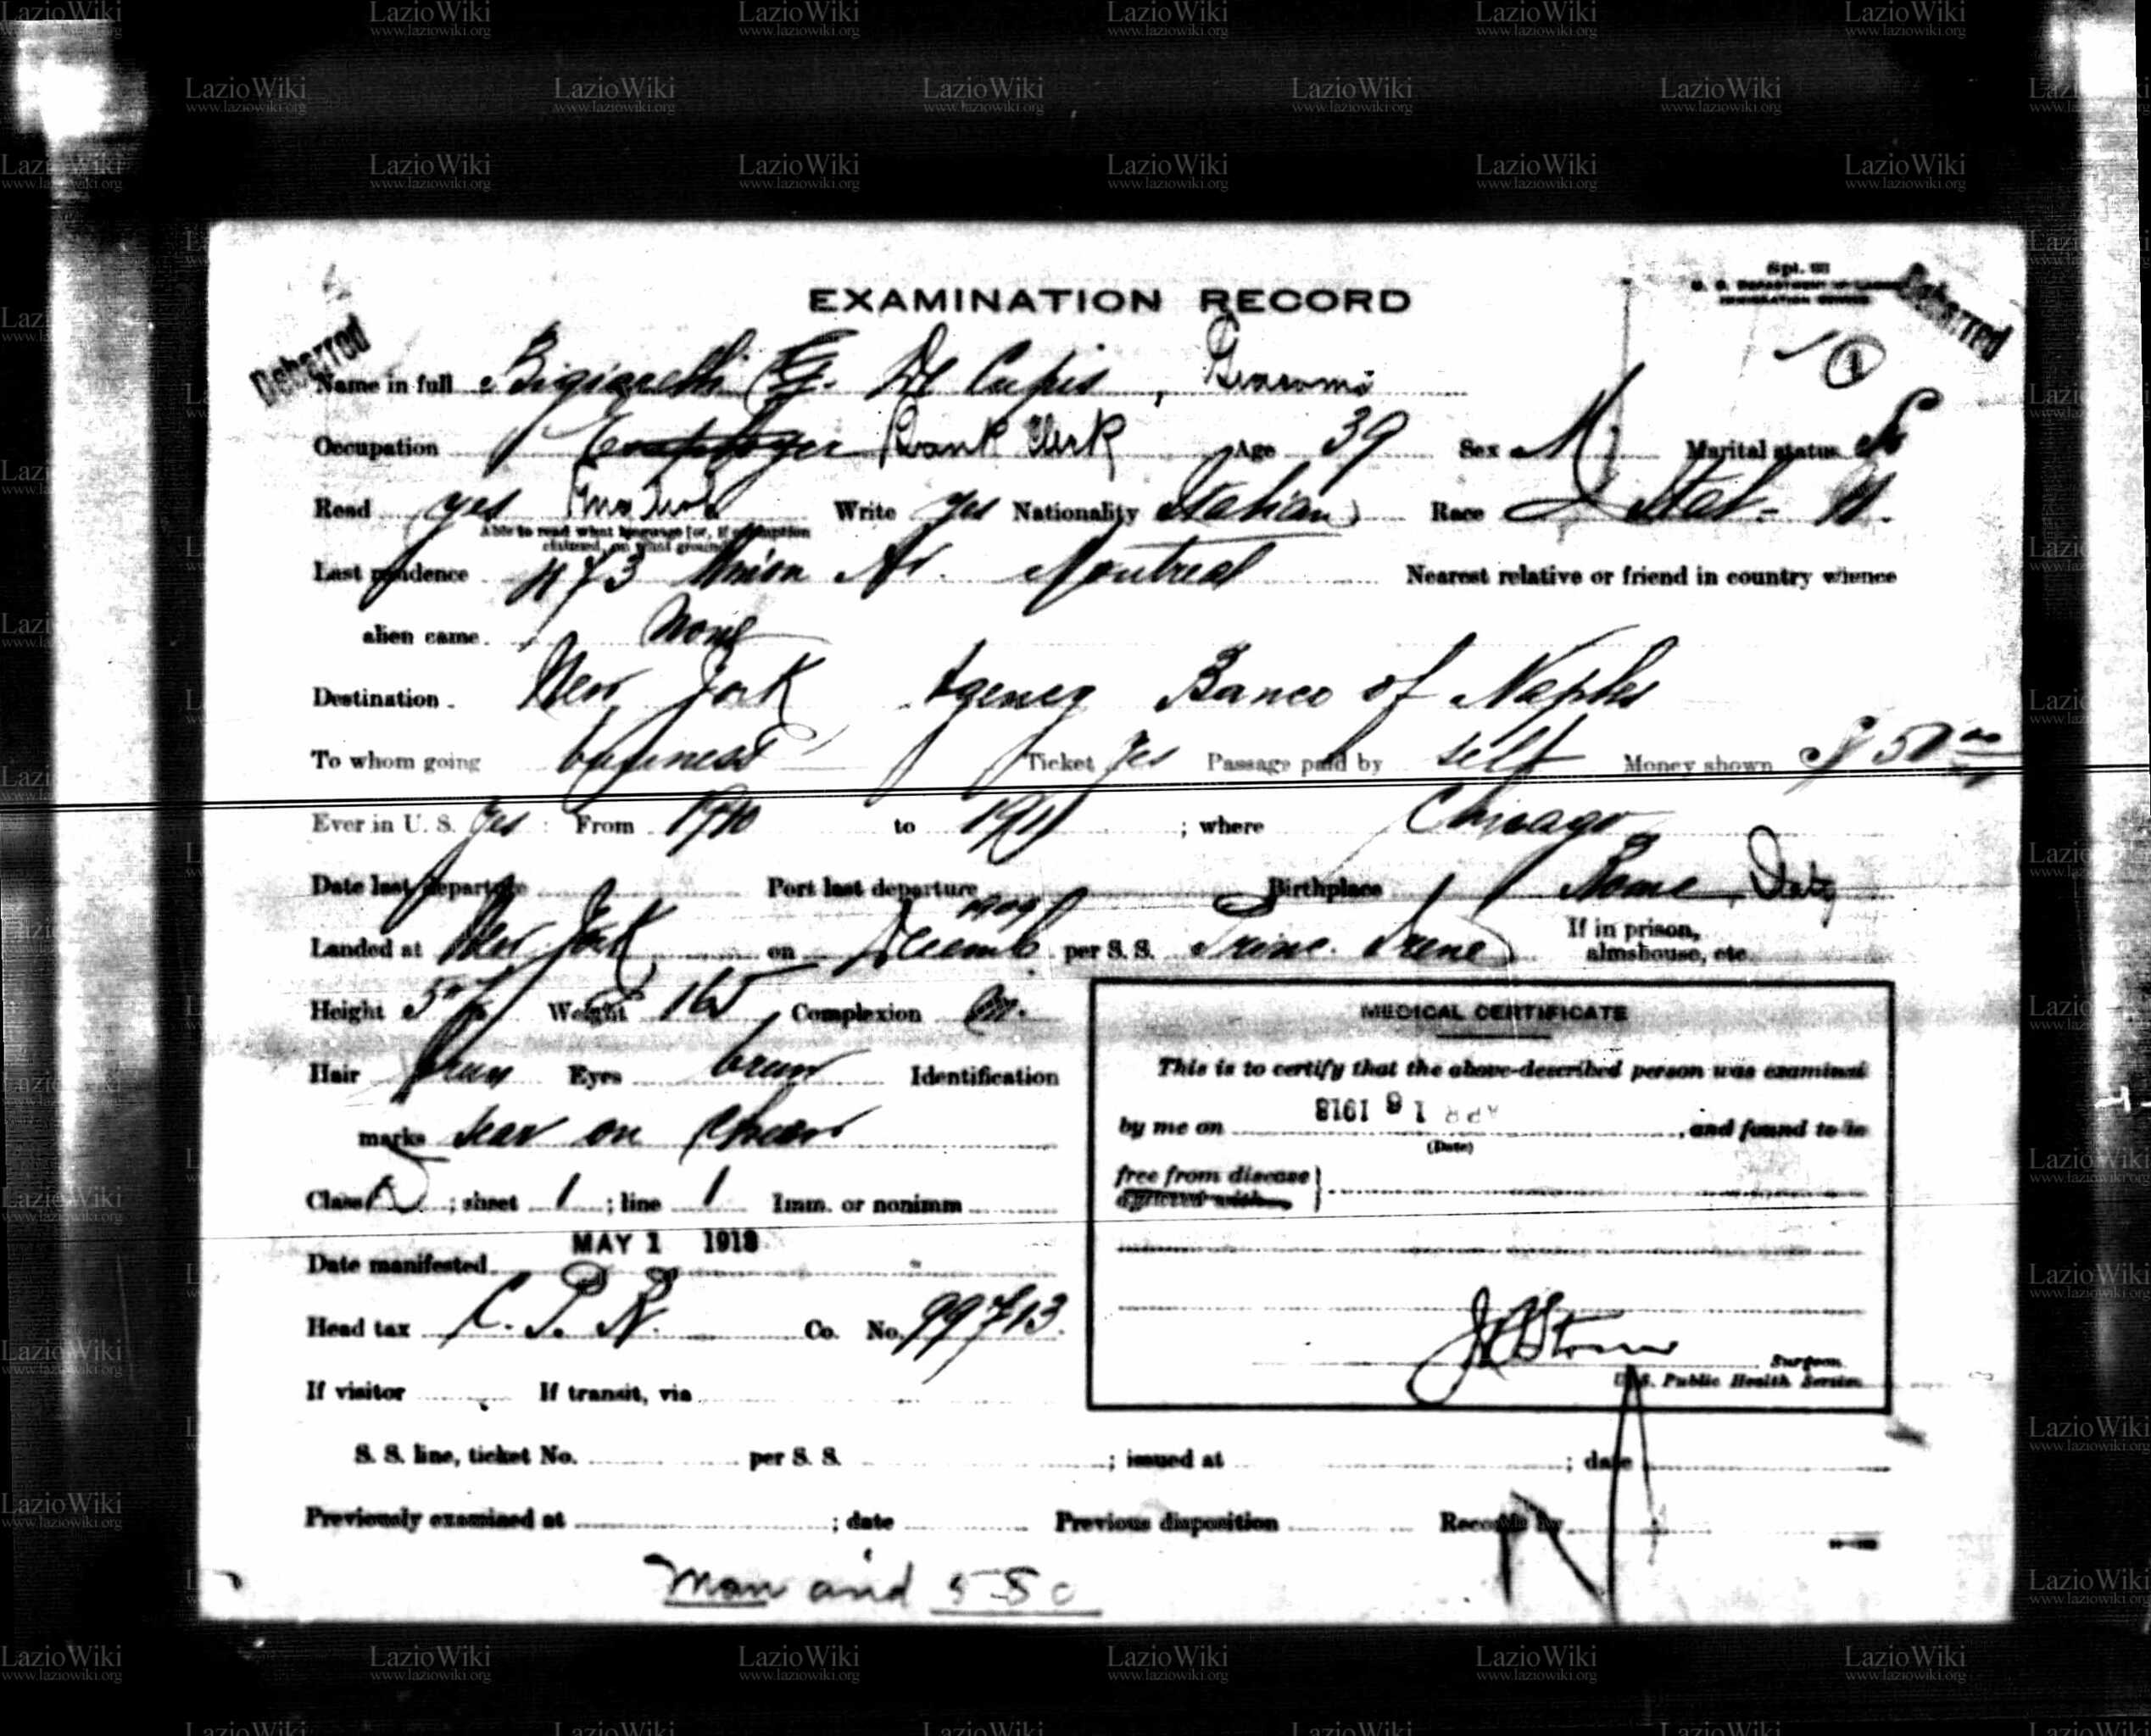 EXAMINATION RECORD
Spl. U. S. DEPARTMENT OF LABOR
IMMIGRATION SERVICE
Debarred
Debarred
1
Name in full Bigiarelli De Cupis, Giacomo
Occupation Bank Clerk Age 39 Sex M Marital status S
Read yes Write yes Nationality Italian Race Ital- N.
Able to read what language for, if exemption
claimed, on what ground
Last residence 473 Union Av. Montreal Nearest relative or friend in country whence
alien came. None
Destination New York Agency Banco of Naples
To whom going business Ticket Yes Passage paid by self Money shown $ 50 00
Ever in U. S. Yes : From 1910 to 1911 ; where Chicago
Date last departure Port last departure Birthplace Rome, Italy
Landed at New York on Decemb 1909 per S. S. Princ. Irene If in prison, almshouse, etc
Height 5-7 Weight 165 Complexion m.
Hair Eyes brown Identification
marks scar on
Class ; sheet 1 ; line 1 Imm. or nonimm
Date manifested MAY 1 1918
Head tax C. P. R. Co. No. 99713
If visitor If transit, via
S. S. line, ticket No. per S. S. ; issued at ; date
Previously examined at ; date Previous disposition Records by
Man and
MEDICAL CERTIFICATE
This is to certify that the above-described person was examined
by me on APR 1 6 1918, and found to be
(Date)
free from disease
afflicted with
Surgeon
U. S. Public Health Service
LazioWiki
www.laziowiki.org